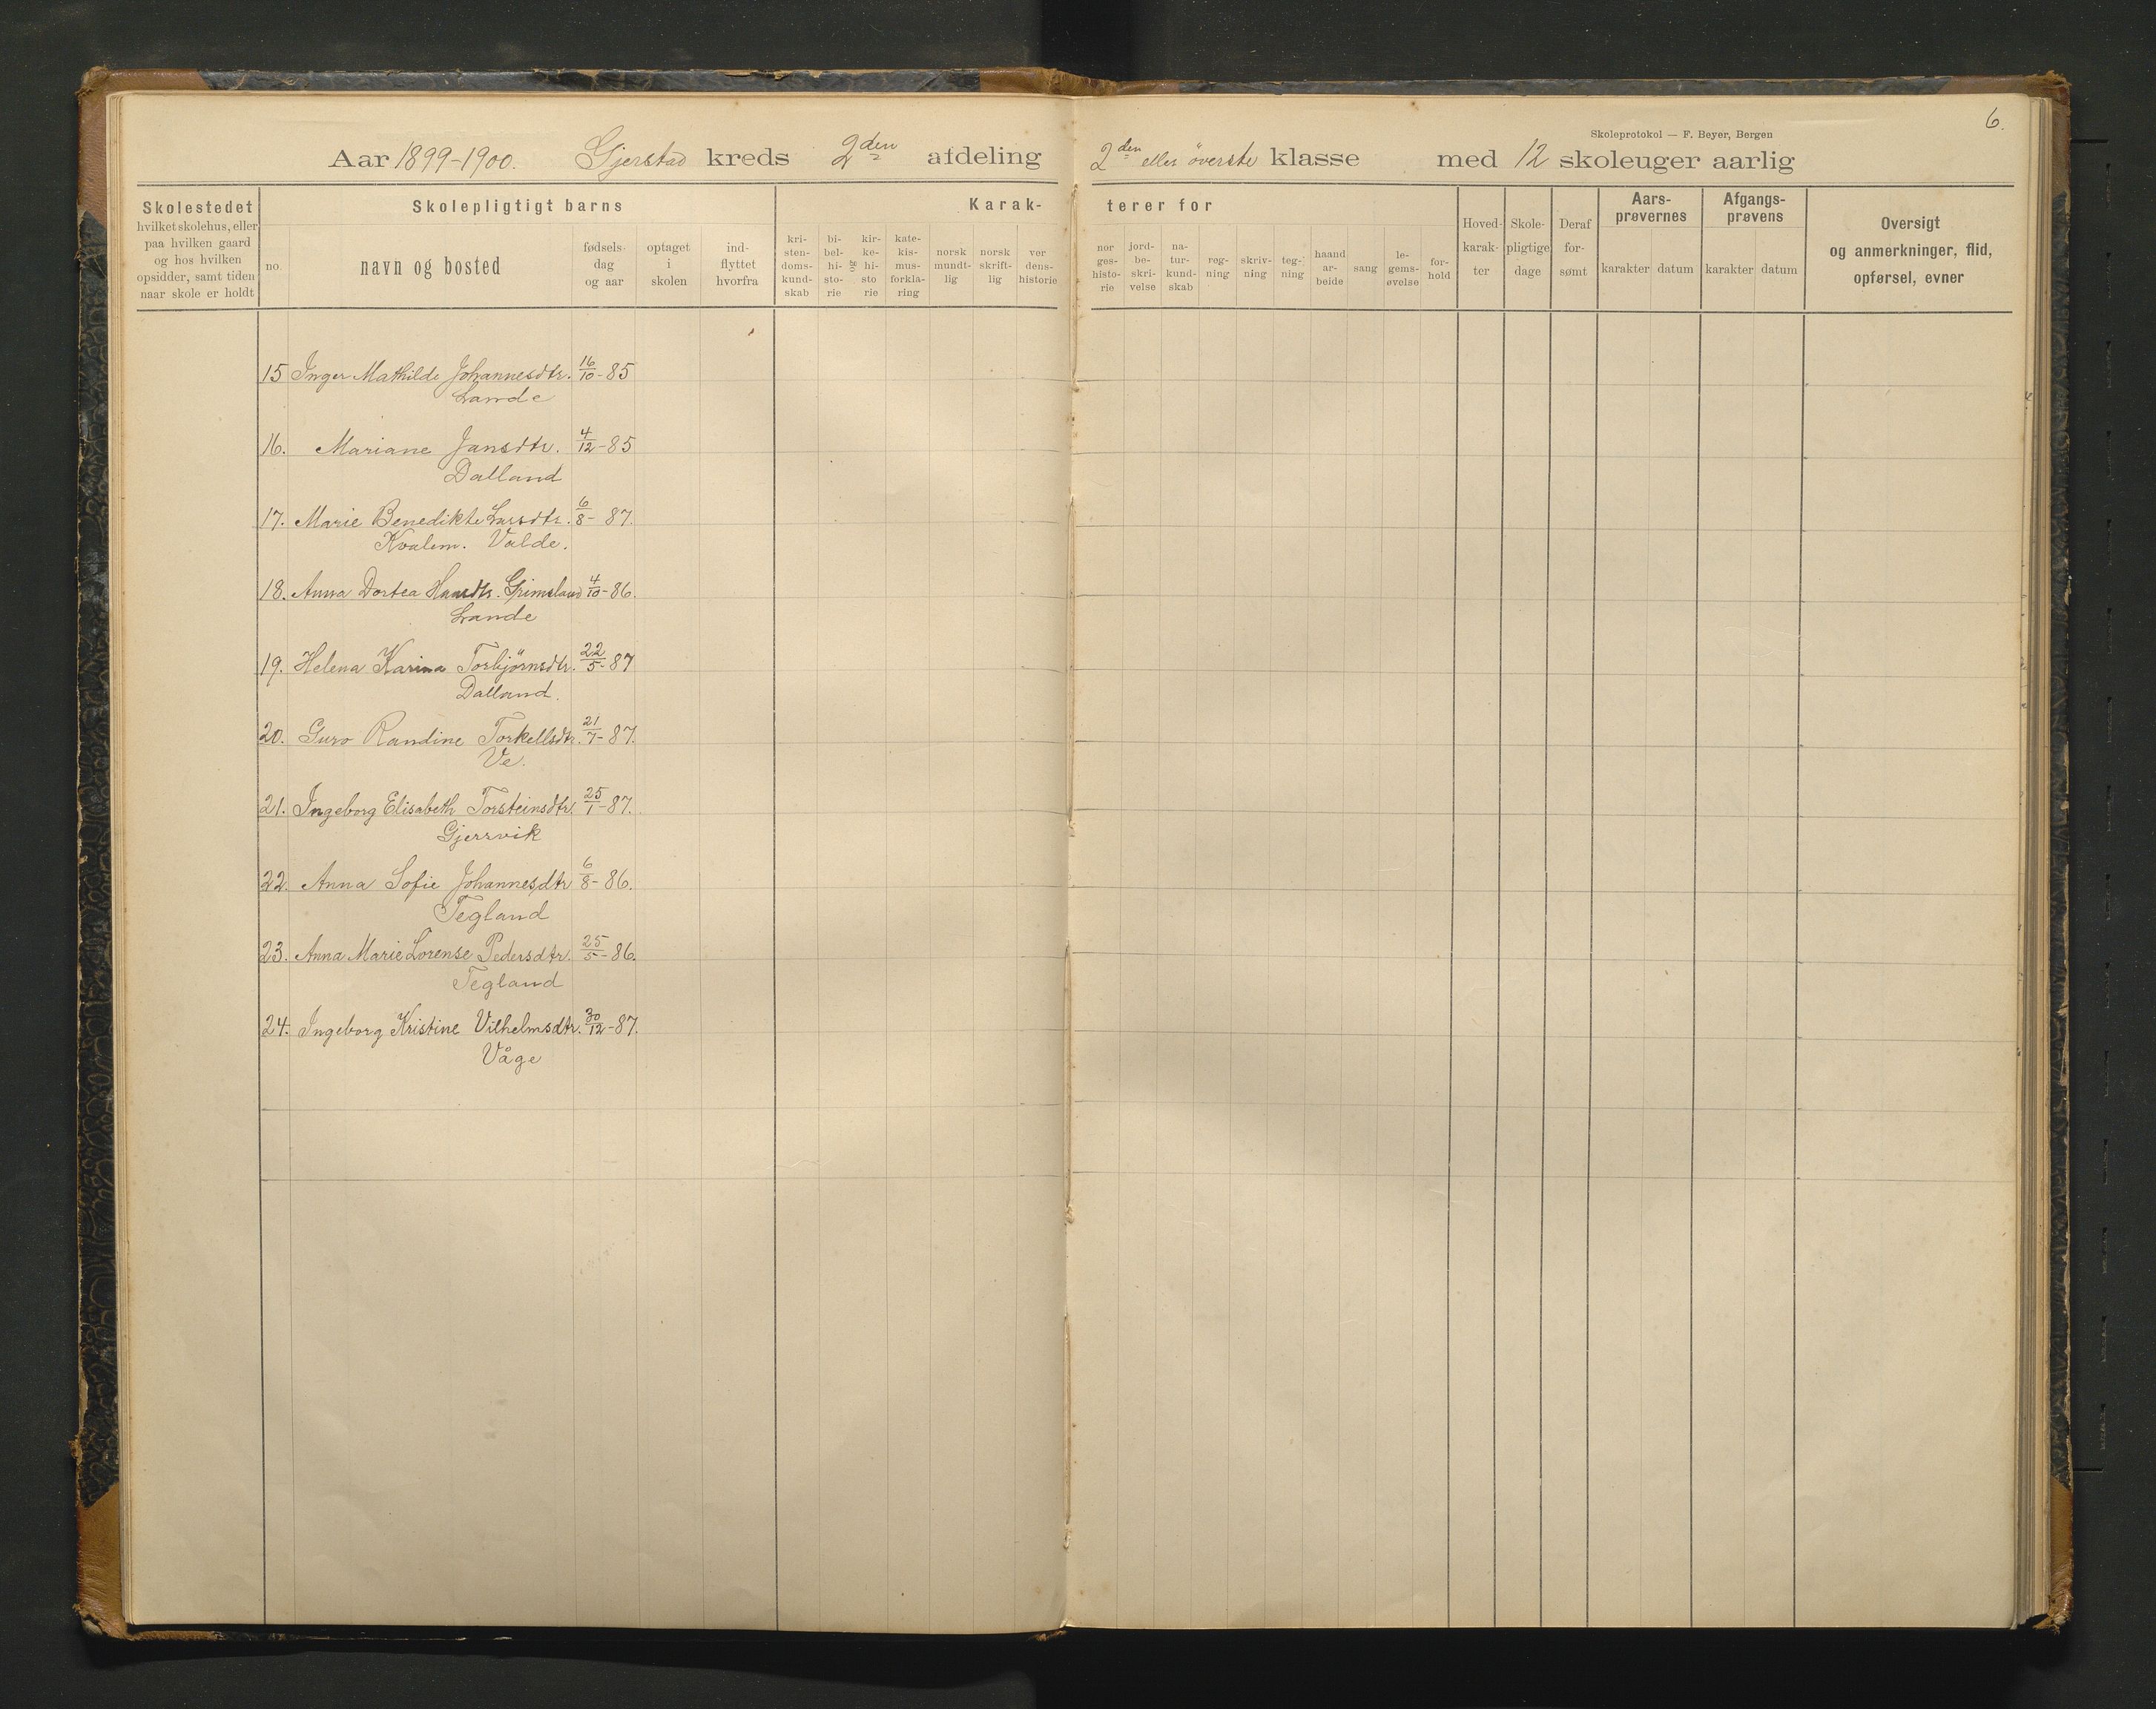 6.
Skoleprotokol — F. Beyer, Bergen
Aar 1899-1900. Gjerstad kreds 2den afdeling 2den eller øverste klasse med 12 skoleuger aarlig
Skolestedet
hvilket skolehus, eller
paa hvilken gaard
og hos hvilken
opsidder, samt tiden
naar skole er holdt
Skolepligtigt barns
no.
navn og bosted
fødsels-
dag
og aar
optaget
i
skolen
ind-
flyttet
hvorfra
Karak-
kri-
sten-
doms-
kund-
skab
bi-
bel-
hi-
sto-
rie
og
kir-
ke-
hi-
sto
rie
kate-
kis-
mus-
forkla-
ring
norsk
mundt-
lig
norsk
skrift-
lig
ver
dens-
historie
terer for
nor
ges-
histo-
rie
jord-
be-
skri-
velse
na-
tur-
kund-
skab
reg-
ning
skriv-
ning
teg-
ning
haand
ar-
beide
sang
le-
gems-
øvelse
for-
hold
Hoved-
karak-
ter
Skole-
pligtige
dage
Deraf
for-
sømt
Aars-
prøvernes
karakter datum
Afgangs-
prøvens
karakter datum
Oversigt
og anmerkninger, flid,
opførsel, evner
15 Inger Mathilde Johannesdtr. 16/10-85
Lande
16. Mariane Jansdtr. 4/12-85
Dalland
17. Marie Benedikte Larsdtr. 6/8-87.
Kvalem. Valde.
18. Anna Dortea Hansdtr. Grimsland 4/10-86.
Lande
19. Helena Karina Torbjörnsdtr. 22/5-87
Dalland.
20. Guro Randine Torkellsdtr. 21/7-87.
Ve.
21. Ingeborg Elisabeth Torsteinsdtr. 25/1-87.
Gjersvik
22. Anna Sofie Johannesdtr 6/8-86.
Tegland
23. Anna Marie Lorense Pedersdtr. 25/5-86.
Tegland
24. Ingeborg Kristine Vilhelmsdtr. 30/12-87.
Våge